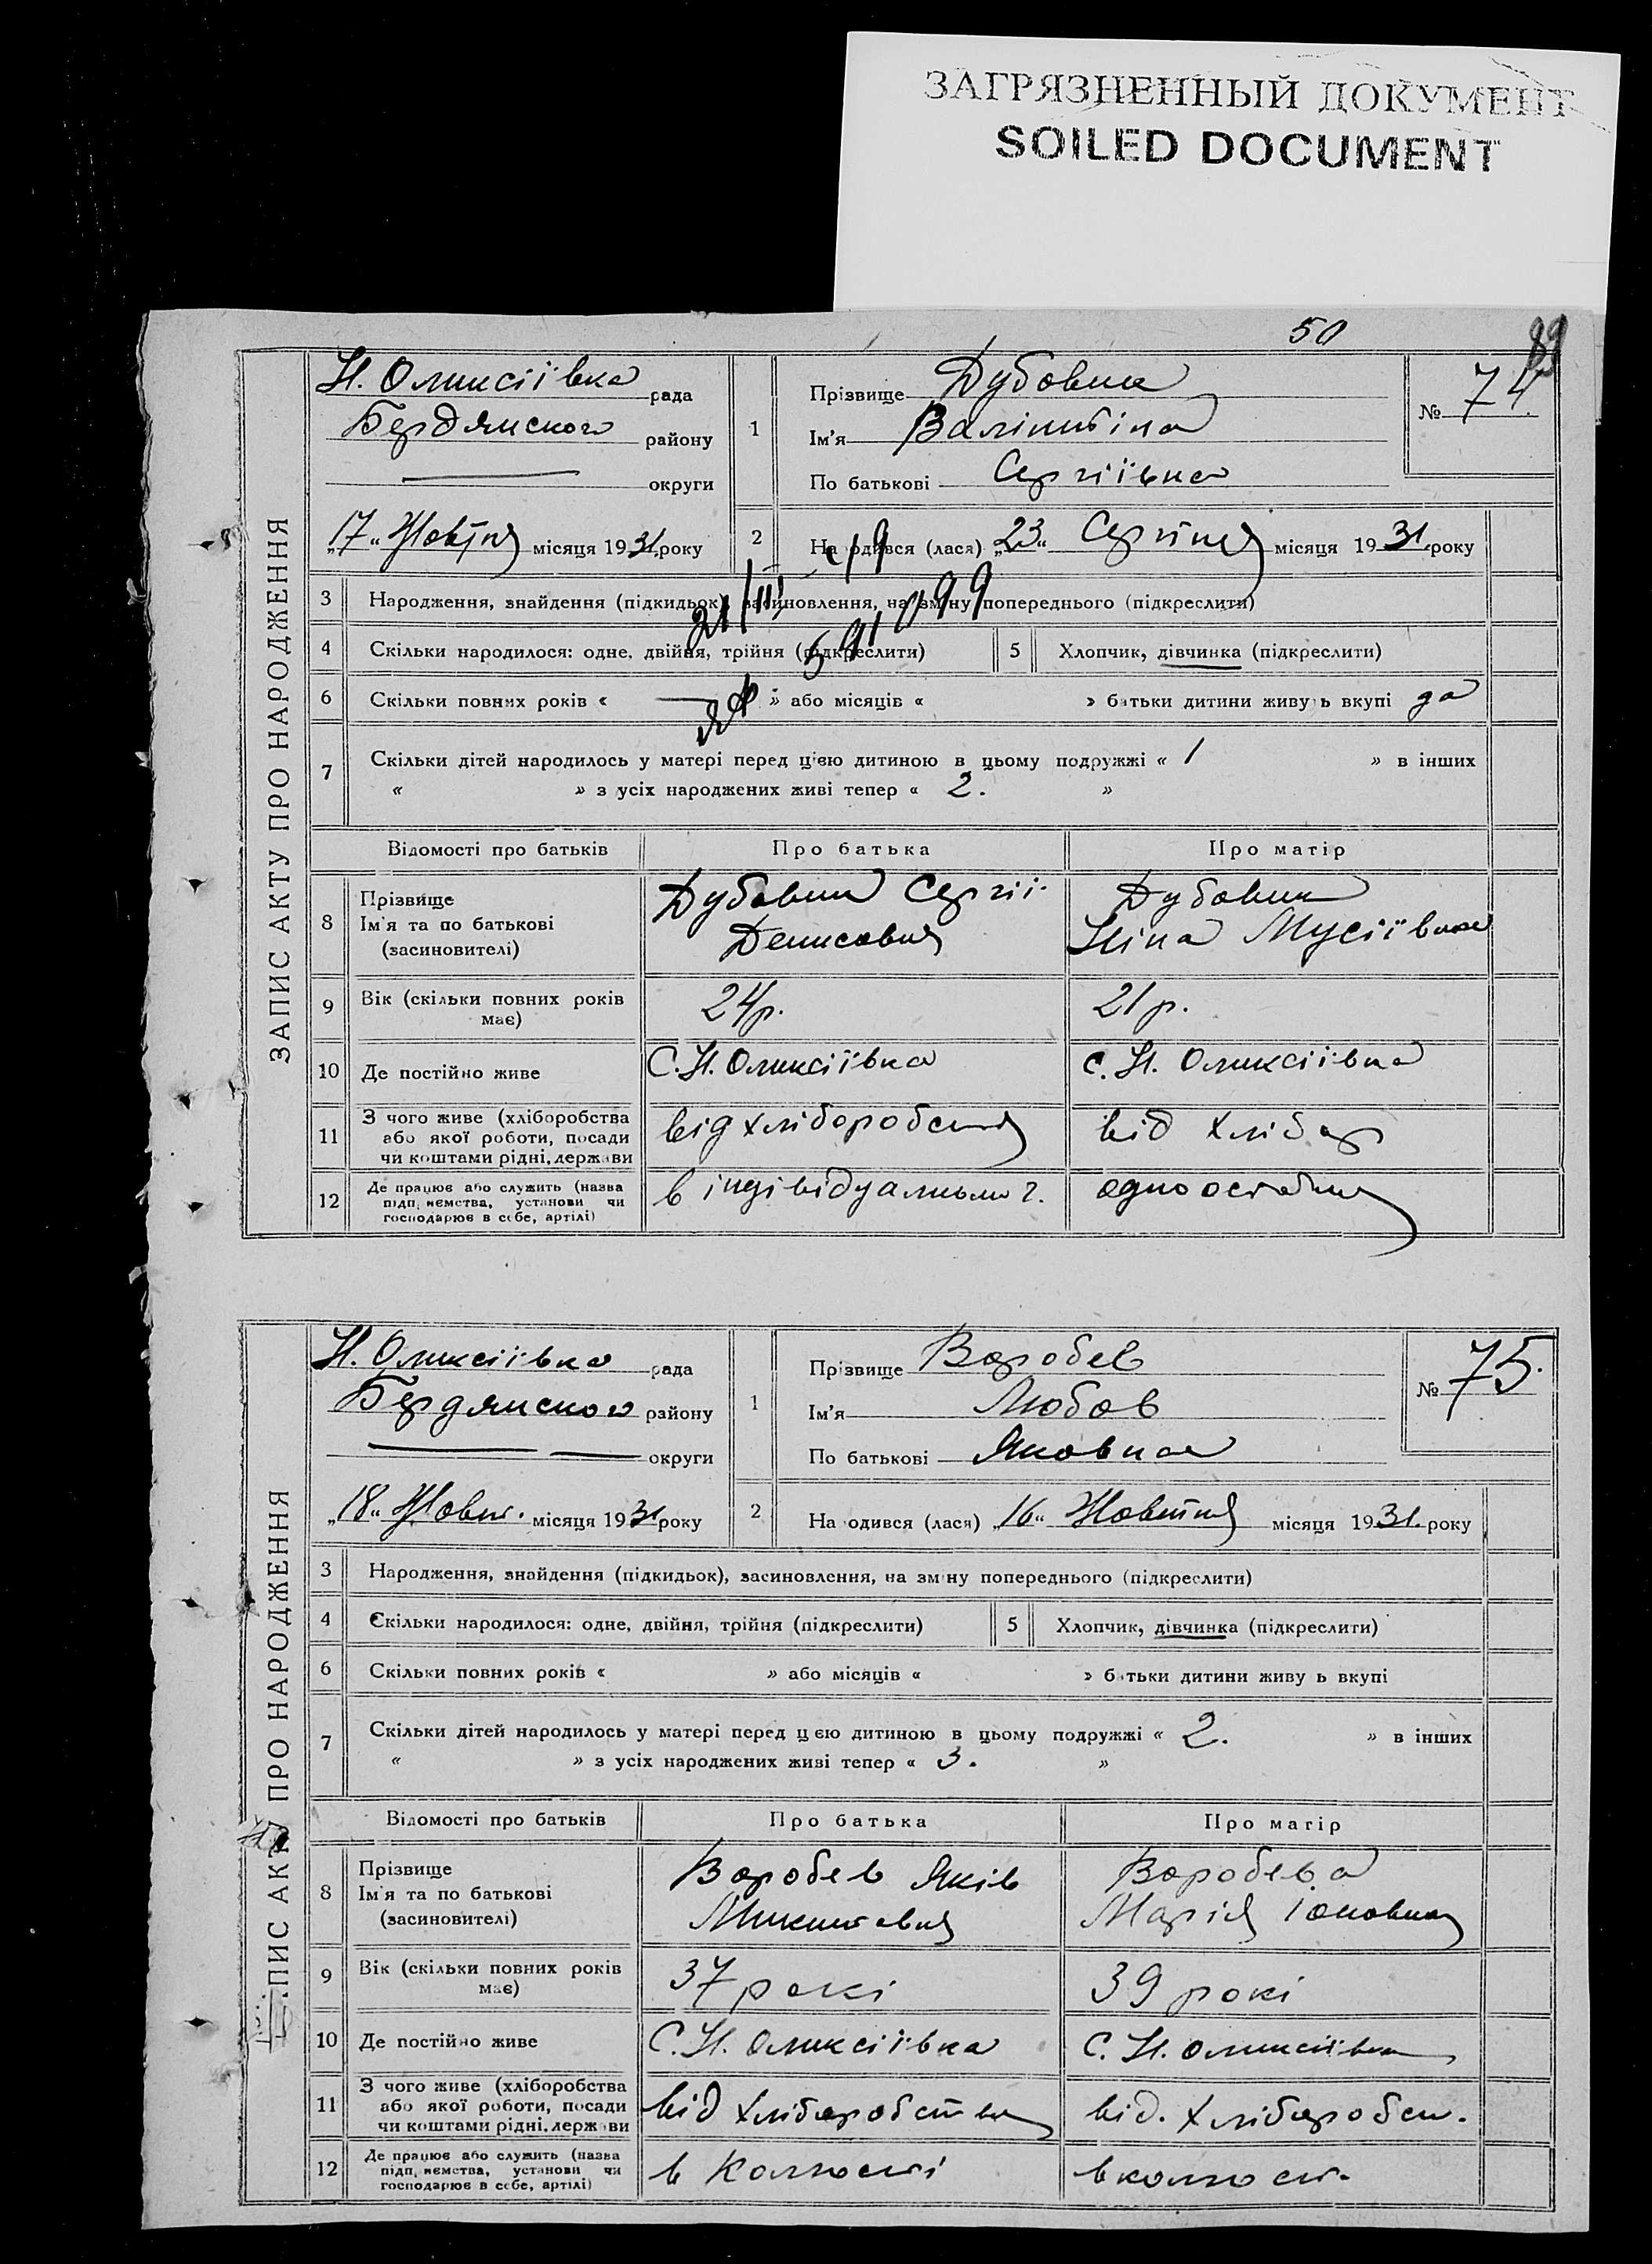 ЗАГРЯЗНЕННЫЙ ДОКУМЕНТ
SOILED DOCUMENT
50
89
ЗАПИС АКТУ ПРО НАРОДЖЕННЯ
Н. Оликсіївка рада
Бердянского району
округи
1 Прізвище Дубовик
Ім'я Валінтіна
По батькові Сергіївна
№ 74.
„17“ Жовтня місяця 1931 року
2 Народився (лася) „23“ Серпня місяця 1931 року
3 Народження, знайдення (підкидьок), засиновлення, на зміну попереднього (підкреслити)
4 Скільки народилося: одне, двійня, трійня (підкреслити) 5 Хлопчик, дівчинка (підкреслити)
6 Скільки повних років « » або місяців « » батьки дитини живуть вкупі да
7 Скільки дітей народилось у матері перед цією дитиною в цьому подружжі « 1 » в інших
« » з усіх народжених живі тепер « 2. »
Відомості про батьків Про батька Про матір
8 Прізвище
Ім'я та по батькові
(засиновителі)
Дубовик Сергій
Денисович
Дубовик
Ніна Мусіївна
9 Вік (скільки повних років
має)
24 р.
21 р.
10 Де постійно живе С. Н. Оликсіївка с. Н. Оликсіївка
11 З чого живе (хліборобства
або якої роботи, посади
чи коштами рідні, держави
від хліборобства
від хлібор
12 Де працює або служить (назва
підприємства, установи чи
господарює в себе, артілі)
в індівідуальном г.
одноосібник
ЗАПИС АКТУ ПРО НАРОДЖЕННЯ
Н. Оликсіївка рада
Бердянского району
округи
1 Прізвище Воробев
Ім'я Любов
По батькові Яковна
№ 75.
„18“ Жовт. місяця 1931 року
2 Народився (лася) „16“ Жовтня місяця 1931 року
3 Народження, знайдення (підкидьок), засиновлення, на зміну попереднього (підкреслити)
4 Скільки народилося: одне, двійня, трійня (підкреслити) 5 Хлопчик, дівчинка (підкреслити)
6 Скільки повних років « » або місяців « » батьки дитини живуть вкупі
7 Скільки дітей народилось у матері перед цією дитиною в цьому подружжі « 2. » в інших
« » з усіх народжених живі тепер « 3. »
Відомості про батьків Про батька Про матір
8 Прізвище
Ім'я та по батькові
(засиновителі)
Воробев Яків
Микитович
Воробева
Марія
9 Вік (скільки повних років
має)
37 рокі
39 рокі
10 Де постійно живе С. Н. Оликсіївка С. Н. Оликсіївка
11 З чого живе (хліборобства
або якої роботи, посади
чи коштами рідні, держави
від хліборобства
від. хліборобст.
12 Де працює або служить (назва
підприємства, установи чи
господарює в себе, артілі)
в Колгоспі
в колгосп.